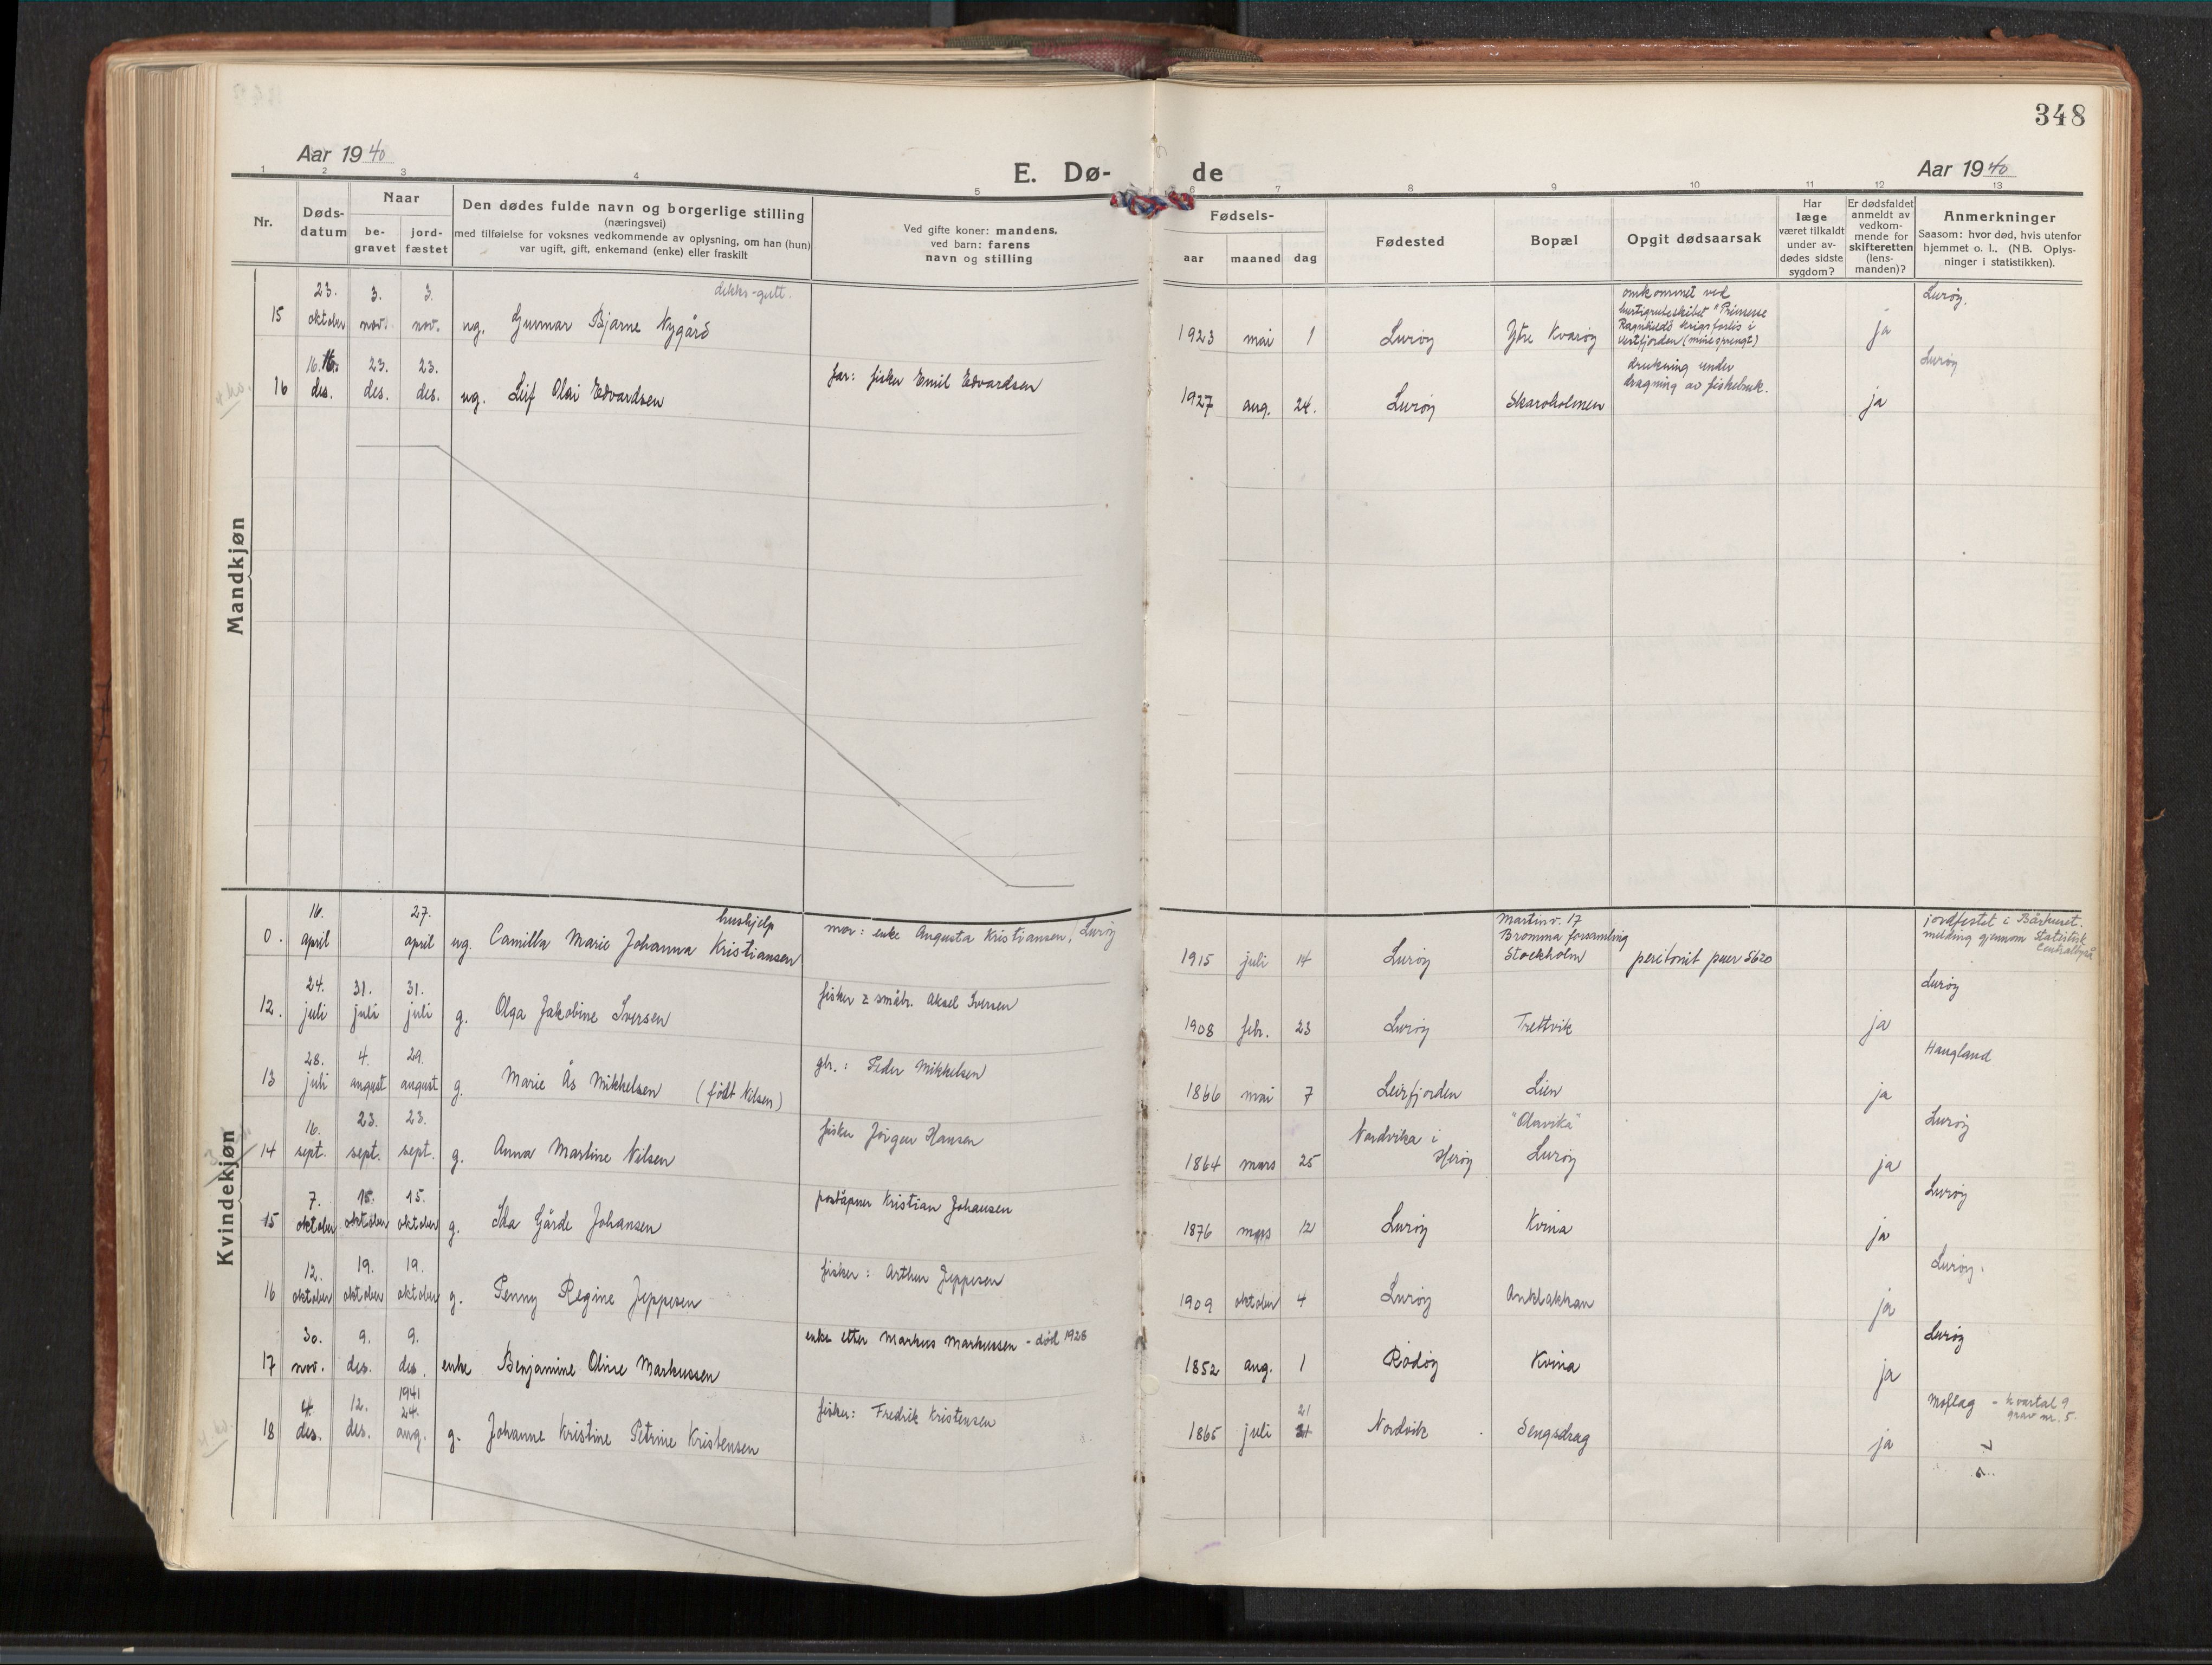 348
Aar 1940
E. Dø-
de
Aar 1940
1 2 3 4 5 6 7 8 9 10 11 12 13
Nr.
Døds-
datum
Naar
be-
gravet
jord-
fæstet
Den dødes fulde navn og borgerlige stilling
(næringsvei)
med tilføielse for voksnes vedkommende av oplysning, om han (hun)
var ugift, gift, enkemand (enke) eller fraskilt
Ved gifte koner: mandens,
ved barn: farens
navn og stilling
Fødsels-
aar maaned dag
Fødested
Bopæl
Opgit dødsaarsak
Har
læge
været tilkaldt
under av-
dødes sidste
sygdom?
Er dødsfaldet
anmeldt av
vedkom-
mende for
skifteretten
(lens-
manden)?
Anmerkninger
Saasom: hvor død, hvis utenfor
hjemmet o. l., (NB. Oplys-
ninger i statistikken).
Mandkjøn
23. 3. 3. dekks-gutt.
15 oktober nov. nov. ug. Gunnar Bjarne Nygård
1923 mai 1 Lurøy Ytre Kvarøy
omkommet ved
hurtigruteskibet "Prinsesse
Ragnhilds krigsforlis i
Vestfjorden (minesprengt)
ja
Lurøy.
16. 23. 23.
16 des. des. des. ug. Leif Olai Edvardsen
far: fisker Emil Edvardsen
1927 aug. 24. Lurøy Skaroholmen
drukning under
dragning av fiskebruk.
ja
Lurøy
Kvindekjøn
16. 27. hushjelp
0. april april ug. Camilla Marie Johanna Kristiansen
mor: enke Augusta Kristiansen, Lurøy
1915 juli 14 Lurøy
Martinv. 17
Bromma forsamling
Stockholm
peritonit puer 5620
jordfestet i Bårhuset.
melding gjennom Statistisk
Centralbyrå
24. 31. 31.
12. juli juli juli g. Olga Jakobine Iversen
fisker & småbr. Aksel Iversen
1908 febr. 23 Lurøy Trettvik ja
Lurøy
28. 4. 29.
13 juli august august g. Marie Ås Mikkelsen (født Nilsen)
gbr.: Peder Mikkelsen
1866 mai 7 Leirfjorden Lien ja
Haugland
16. 23. 23.
14 sept. sept. sept. g. Anna Martine Nilsen
fisker Jörgen Hansen
1864 mars 25
Nordvika i
Herøy
"Olavika"
Lurøy
ja
Lurøy
7. 15. 15.
15 oktober oktober oktober g. Ida Gårde Johansen
poståpner Kristian Johansen
1876 mars 12 Lurøy Kvina ja
Lurøy
12. 19. 19.
16 oktober oktober oktober g. Penny Regine Jeppesen
fisker: Arthur Jeppesen
1909 oktober 4 Lurøy Anklakkan ja
Lurøy.
30. 9. 9.
17 nov. des. des. enke Benjamine Oline Markussen
enke etter Markus Markussen - død 1928
1852 aug. 1 Rødøy Kvina ja
Lurøy
1941
4. 12. 24.
18 des. des. aug. g. Johanne Kristine Petrine Kristensen
fisker: Fredrik Kristensen
21
1865 juli Nordvik Sengsdrag ja
Moflag - kvartal 9
grav nr. 5.